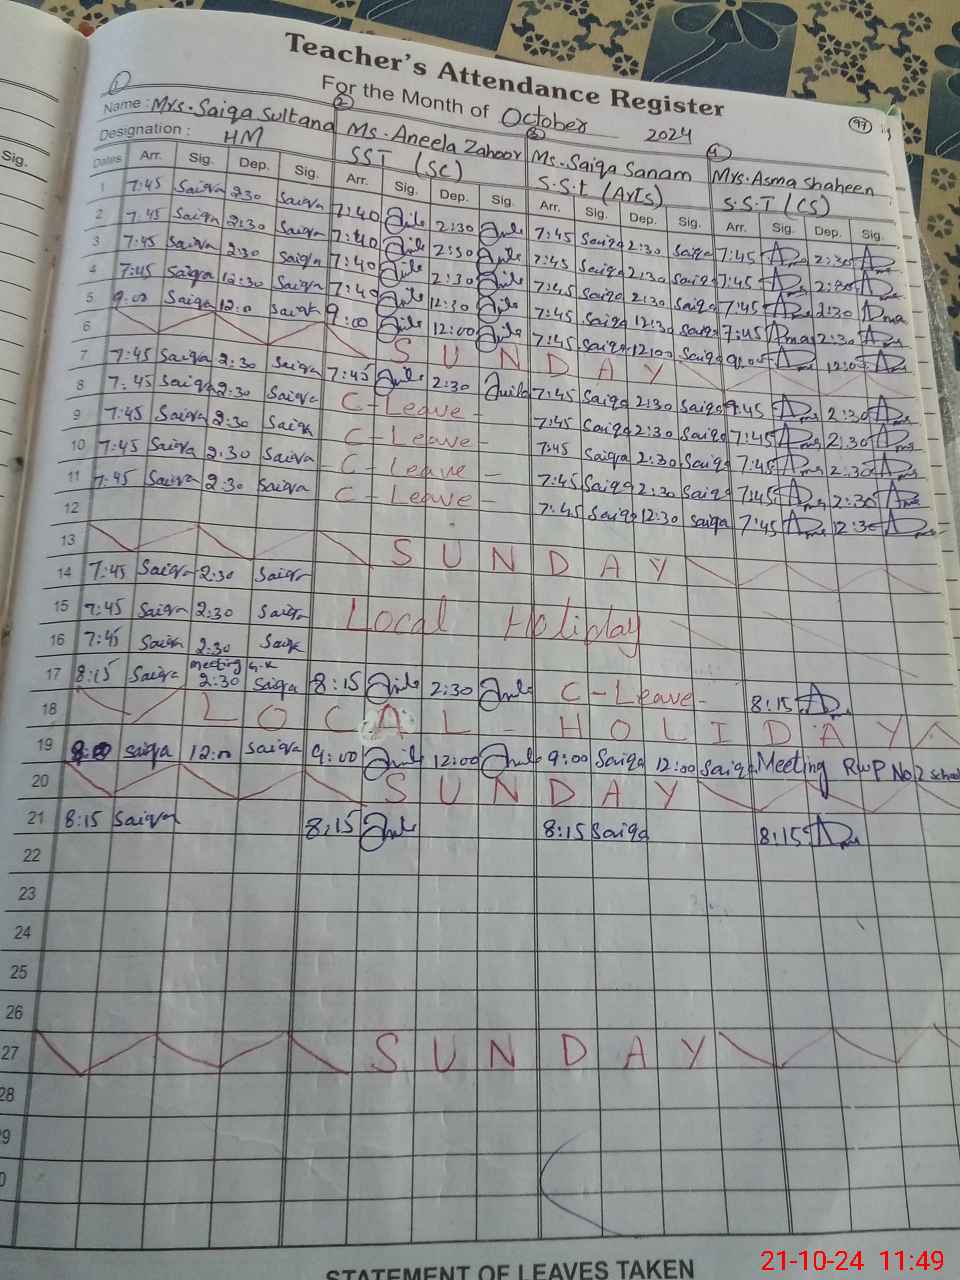 Teacher's Attendance Register
For the Month of October 2024
97
Sig.
1 2 3 4
Name : Mrs. Saiqa Sultana Ms. Aneela Zahoor Ms. Saiqa Sanam Mrs. Asma Shaheen
Designation : HM SST (SC) S.S.t (Arts) S.S.T (CS)
Dates Arr. Sig. Dep. Sig. Arr. Sig. Dep. Sig. Arr. Sig. Dep. Sig. Arr. Sig. Dep. Sig.
1 7:45 Saiqa 2:30 Saiqa 7:40 2:30 7:45 Saiqa 2:30 Saiqa 7:45 2:30
2 7:45 Saiqa 2:30 Saiqa 7:40 2:30 7:45 Saiqa 2:30 Saiqa 7:45 2:30
3 7:45 Saiqa 2:30 Saiqa 7:40 2:30 7:45 Saiqa 2:30 Saiqa 7:45 2:30
4 7:45 Saiqa 12:30 Saiqa 7:40 12:30 7:45 Saiqa 12:30 Saiqa 7:45 2:30
5 9:00 Saiqa 12:0 Saiqa 9:00 12:00 7:45 Saiqa 12:00 Saiqa 9:00 12:0
6 SUNDAY
7 7:45 Saiqa 2:30 Saiqa 7:45 2:30 7:45 Saiqa 2:30 Saiqa 7:45 2:30
8 7:45 Saiqa 2:30 Saiqa C-Leave- 7:45 Saiqa 2:30 Saiqa 7:45 2:30
9 7:45 Saiqa 2:30 Saiqa C-Leave- 7:45 Saiqa 2:30 Saiqa 7:45 2:30
10 7:45 Saiqa 2:30 Saiqa -C-Leave- 7:45 Saiqa 2:30 Saiqa 7:45 2:30
11 7:45 Saiqa 2:30 Saiqa C-Leave- 7:45 Saiqa 12:30 Saiqa 7:45 12:30
12
13 SUNDAY
14 7:45 Saiqa 2:30 Saiqa
15 7:45 Saiqa 2:30 Saiqa Local Holiday
16 7:45 Saiqa 2:30 Saiqa
17 8:15 Saiqa meeting 2:30 Saiqa 8:15 2:30 C-Leave- 8:15
18 LOCAL-HOLIDAY
19 Saiqa 12:00 Saiqa 9:00 12:00 9:00 Saiqa 12:00 Saiqa Meeting RwP No 2 school
20 SUNDAY
21 8:15 Saiqa 8:15 8:15 Saiqa 8:15
22
23
24
25
26
27 SUNDAY
28
9
0
STATEMENT OF LEAVES TAKEN
21-10-24 11:49